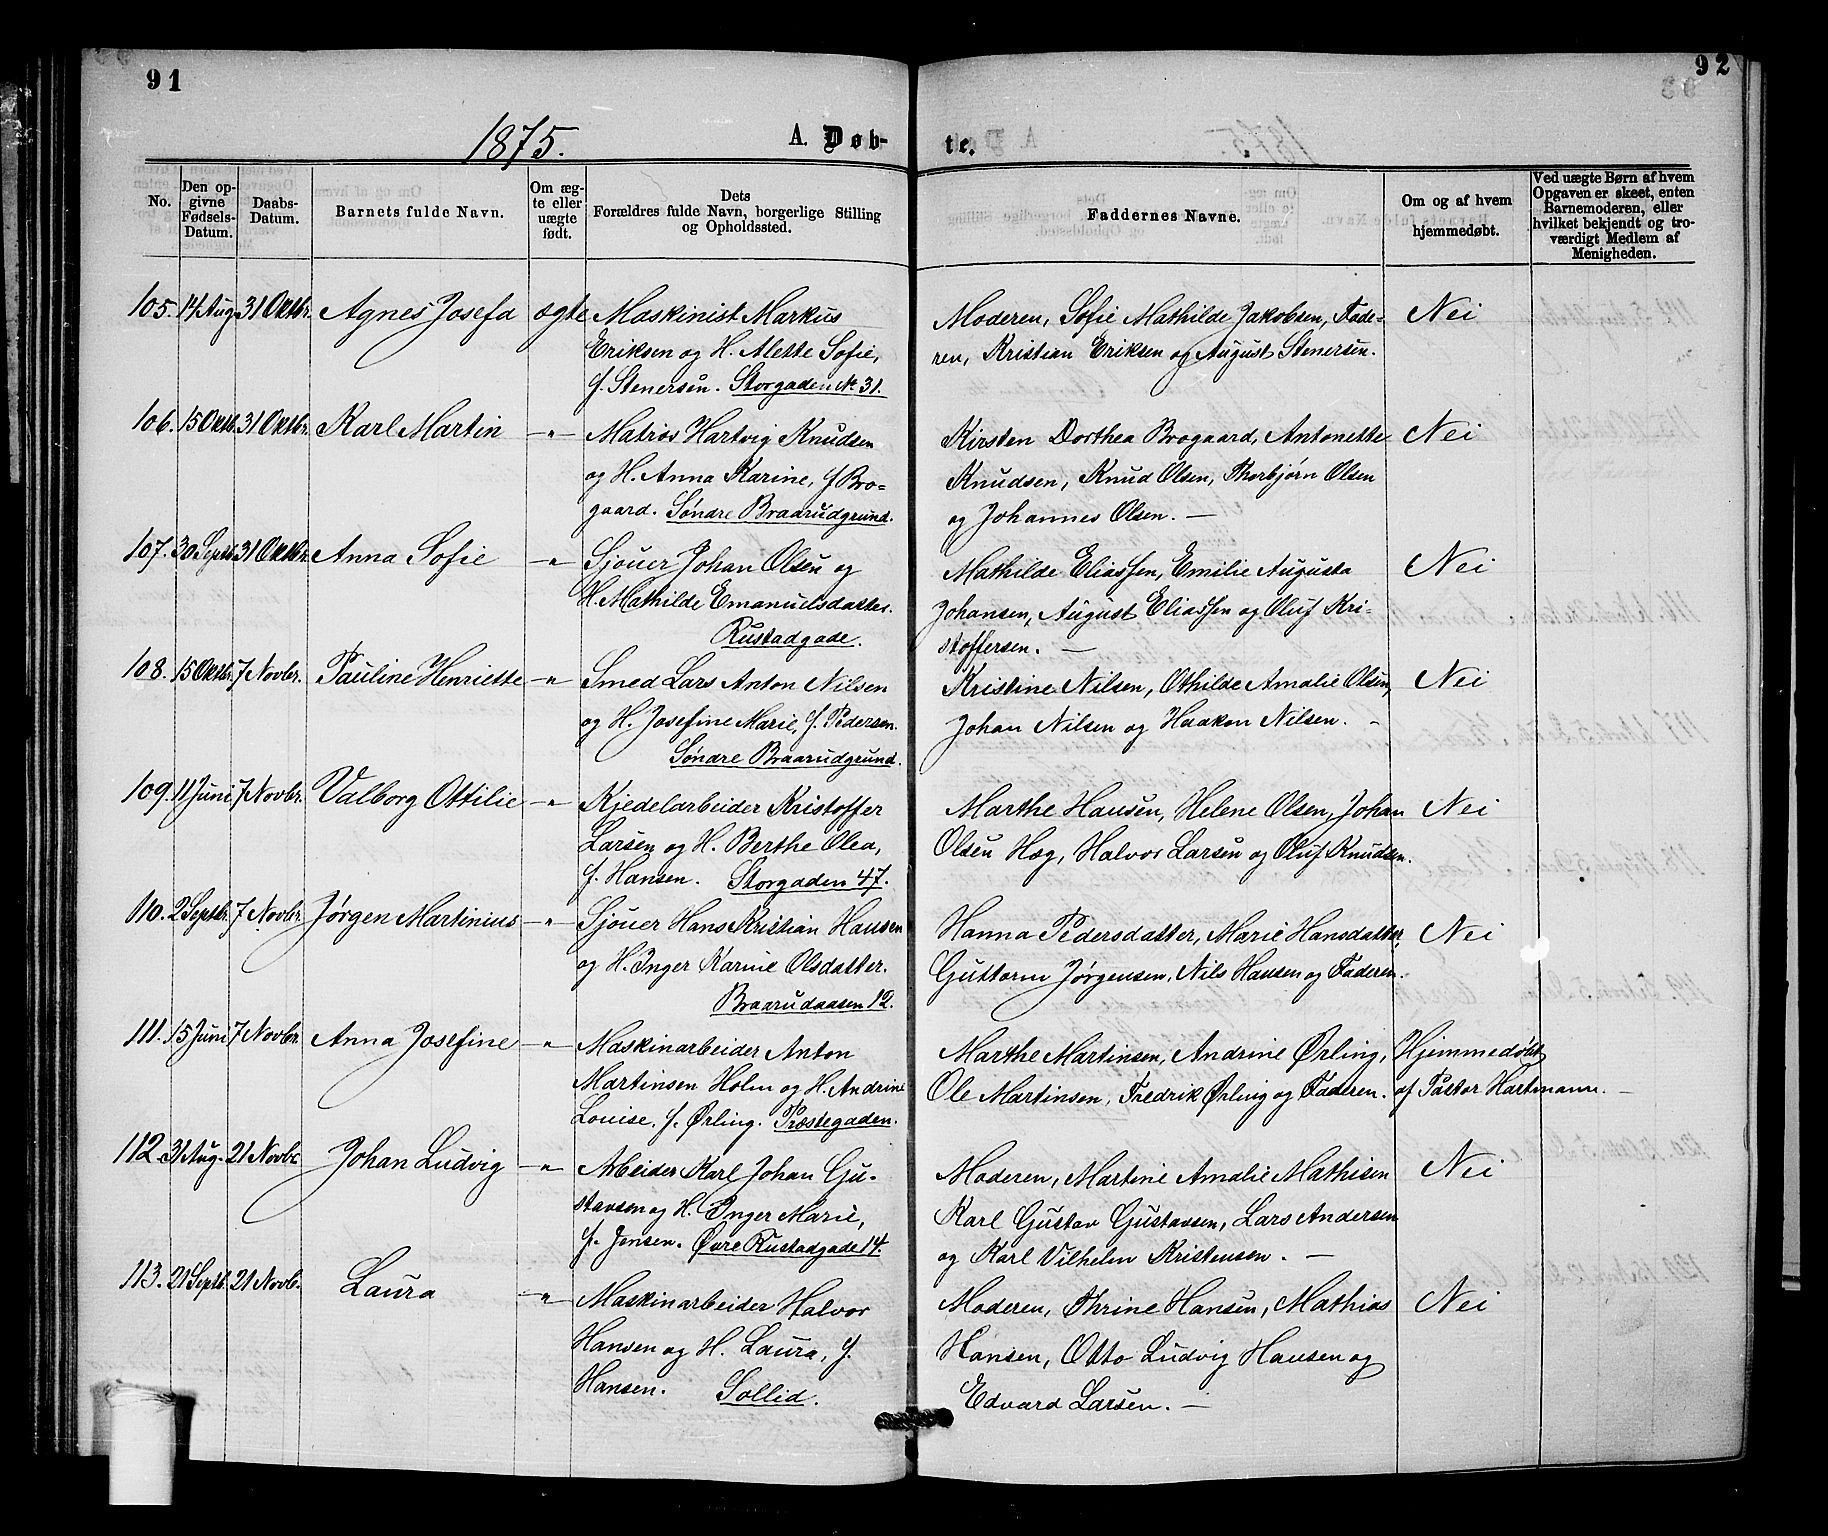 91
92
1875.
A. Døb-
te.
No.
Den op-
givne
Fødsels-
Datum.
Daabs-
Datum.
Barnets fulde Navn.
Om æg-
te eller
uægte
født.
Dets
Forældres fulde Navn, borgerlige Stilling
og Opholdssted.
Faddernes Navne.
Om og af hvem
hjemmedøbt.
Ved uægte Børn af hvem
Opgaven er skeet, enten
Barnemoderen, eller
hvilket bekjendt og tro-
værdigt Medlem af
Menigheden.
105. 14 Aug. 31 Oktbr. Agnes Josefa ægte Maskinist Markus
Eriksen og H. Alette Sofie,
f. Stenersen. Storgaden No 31.
Moderen, Sofie Mathilde Jakobsen, Fade-
ren, Kristian Eriksen og August Stenersen.
Nei
106. 15 Oktb. 31 Oktbr. Karl Martin -"- Matros Hartvig Knudsen
og H. Anna Karine, f Bro-
gaard. Søndre Braarudgrund.
Kirsten Dorthea Brogaard, Antonette
Knudsen, Knud Olsen, Thorbjørn Olsen
og Johannes Olsen. —
Nei
107. 30 Septb. 31 Oktbr. Anna Sofie -"- Sjouer Johan Olsen og
H. Mathilde Emanuelsdatter.
Rustadgade.
Mathilde Eliassen, Emilie Augusta
Johansen, August Eliassen og Oluf Kri-
stoffersen. —
Nei
108. 15 Oktbr. 7 Novbr. Pauline Henriette -"- Smed Lars Anton Nilsen
og H. Josefine Marie, f. Pedersen.
Søndre Braarudgrund.
Kristine Nilsen, Othilde Amalie Olsen,
Johan Nilsen og Haakon Nilsen. —
Nei
109. 11 Juni 7 Novbr. Valborg Ottilie -"- Kjedelarbeider Kristoffer
Larsen og H. Berthe Olea,
f. Hansen. Storgaden 47.
Marthe Hansen, Helene Olsen, Johan
Olsen Hæg, Halvor Larsen og Oluf Knudsen.
Nei
110. 2 Septbr. 7 Novbr. Jørgen Martinius -"- Sjouer Hans Kristian Hansen
og H. Inger Karine Olsdatter.
Braarudaasen 12.
Hanna Pedersdatter, Marie Hansdatter,
Guttorm Jørgensen, Nils Hansen og Faderen.
Nei
111. 15 Juni 7 Novbr. Anna Josefine -"- Maskinarbeider Anton
Martinsen Holm og H. Andrine
Louise, f. Ørling. Præstegaden.
Marthe Martinsen, Andrine Ørling,
Ole Martinsen, Fredrik Ørling og Faderen.
Hjemmedøbt
af Pastor Hartmann. —
112. 31 Aug. 21 Novbr Johan Ludvig -"- Arbeider Karl Johan Gu-
stavsen og H. Inger Marie,
f. Jensen. Øvre Rustadgade 14.
Moderen, Martine Amalie Mathisen
Karl Gustav Gustavsen, Lars Andersen
og Karl Vilhelm Kristensen. —
Nei
113. 21 Septb. 21 Novb. Laura -"- Maskinarbeider Halvor
Hansen og H. Laura, f.
Hansen. Sollid.
Moderen, Thrine Hansen, Mathias
Hansen, Otto Ludvig Hansen og
Edvard Larsen. —
Nei